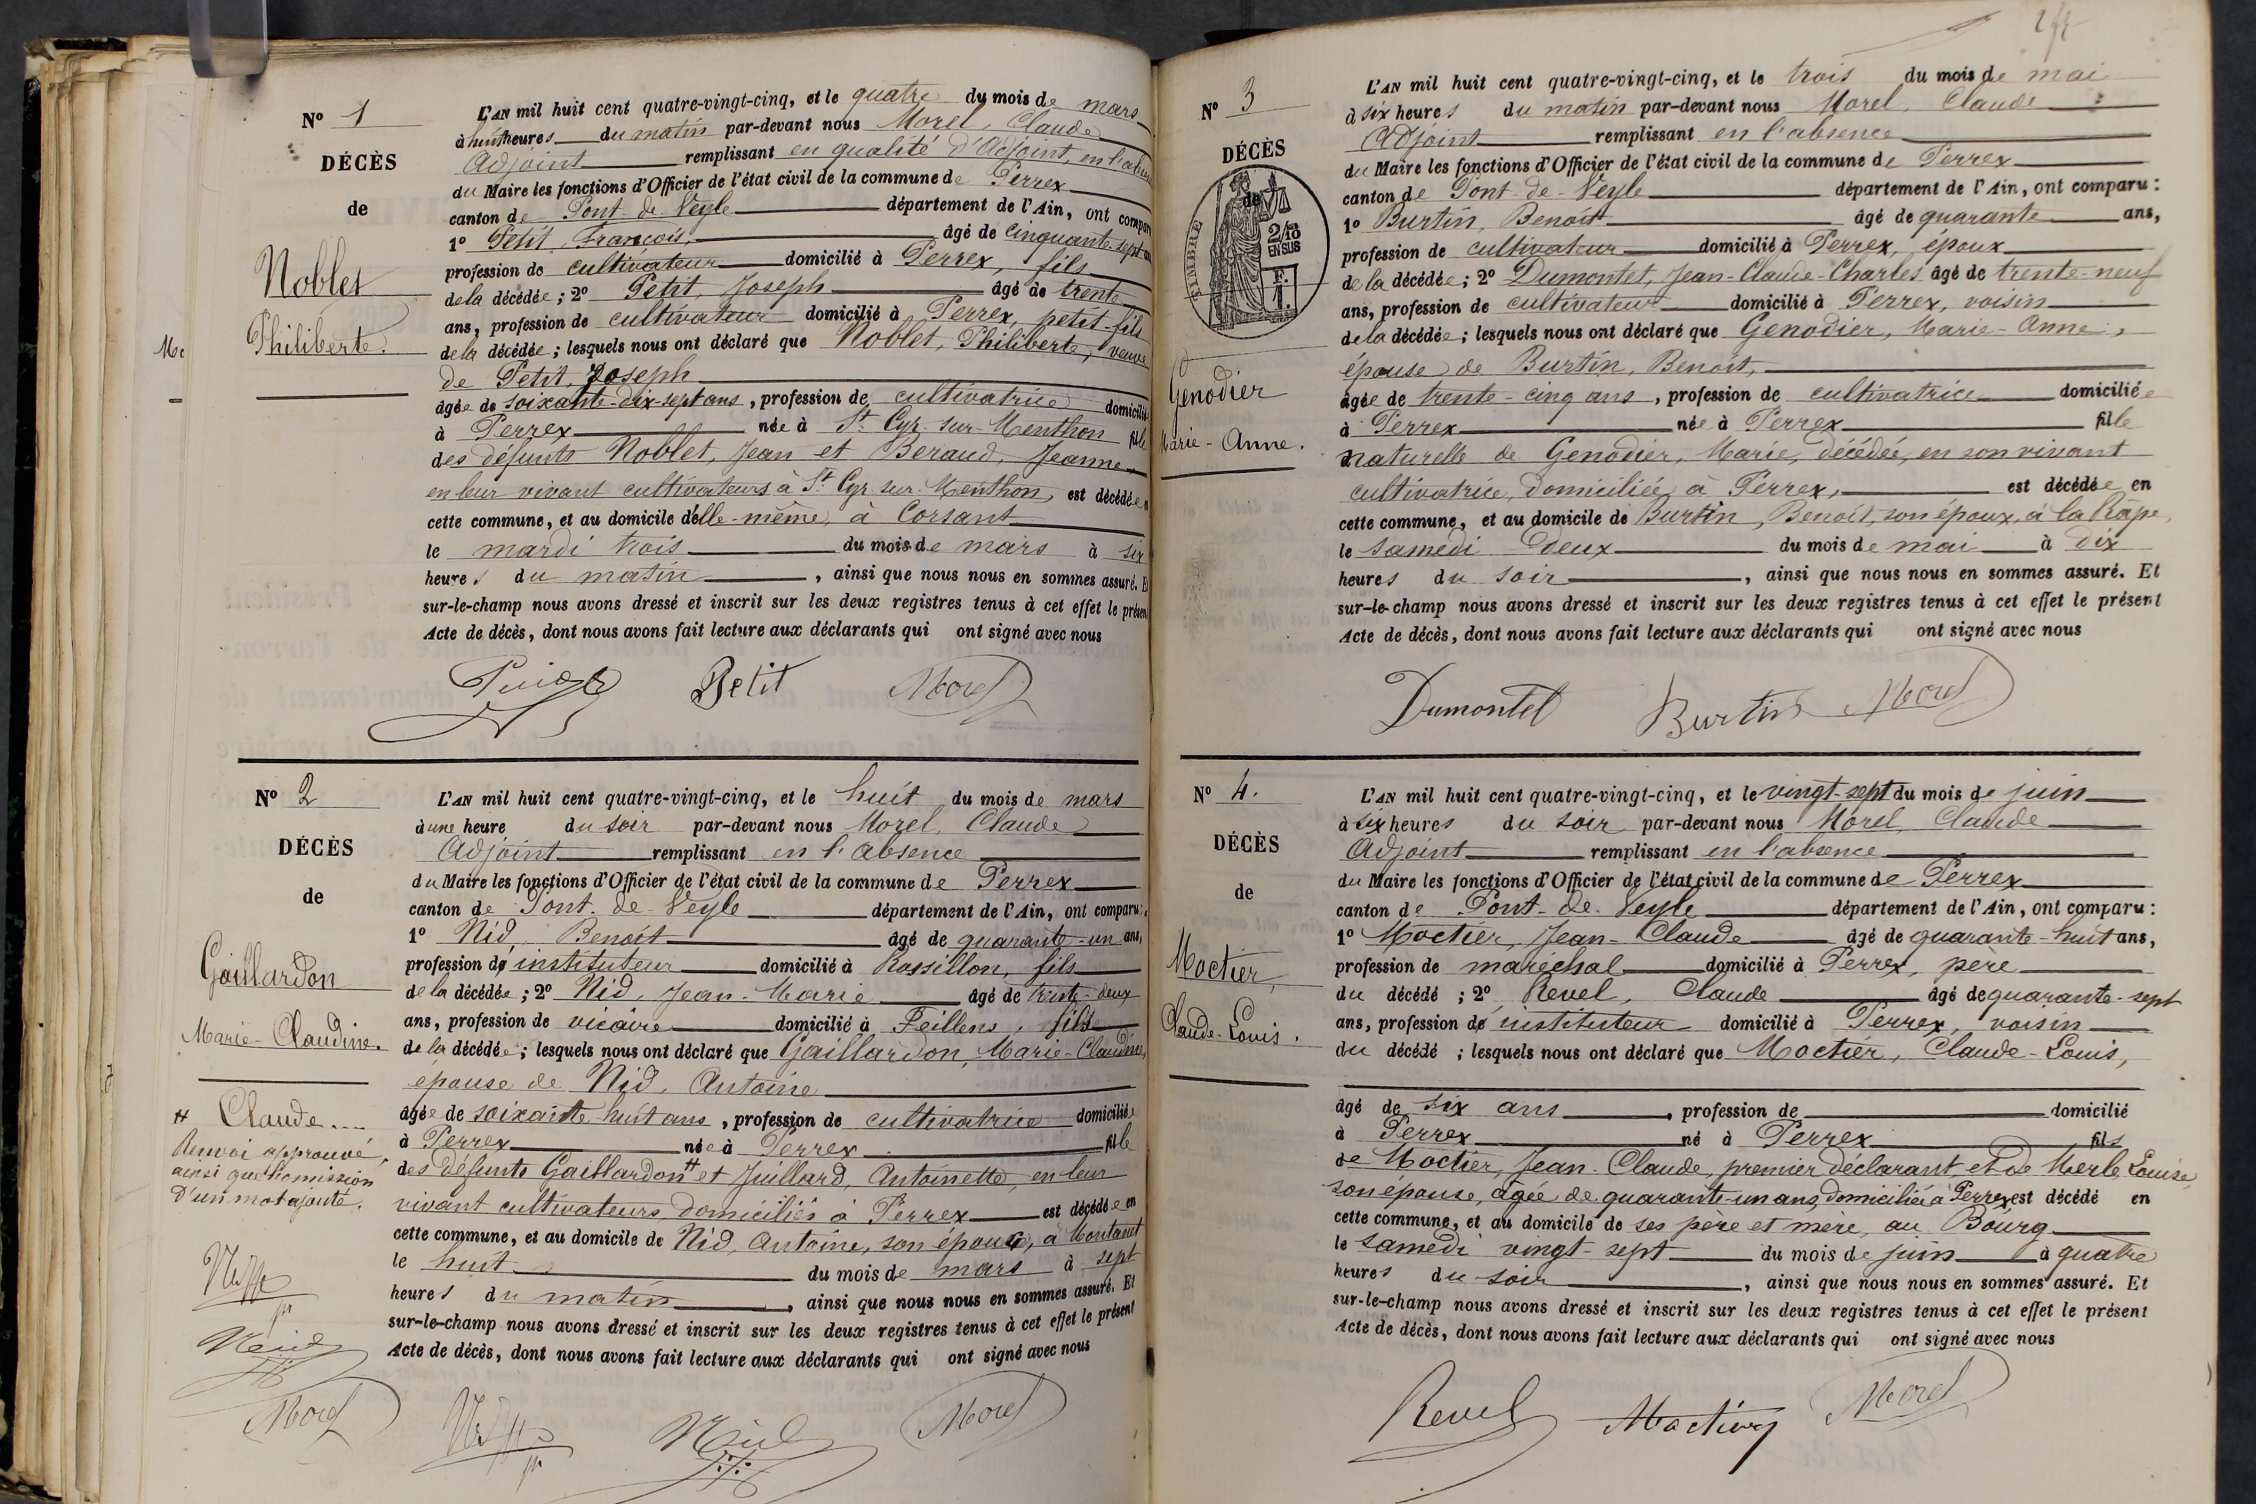 Nº 1
DÉCÈS
de
Noblet
Philiberte.
L'AN mil huit cent quatre-vingt-cinq, et le quatre du mois de mars
à huit heures du matin par-devant nous Morel, Claude
Adjoint remplissant en qualité d'Adjoint, en l'absence
du Maire les fonctions d'Officier de l'état civil de la commune de Perrex
canton de Pont-de-Veyle département de l'Ain, ont comparu
1º Petit, François, âgé de cinquante-sept ans
profession de cultivateur domicilié à Perrex, fils
de la décédée ; 2º Petit, Joseph âgé de trente
ans, profession de cultivateur domicilié à Perrex, petit-fils
de la décédée ; lesquels nous ont déclaré que Noblet, Philiberte, veuve
de Petit, Joseph
âgée de soixante-dix-sept ans, profession de cultivatrice domiciliée
à Perrex née à St. Cyr-sur-Menthon fille
des défunts Noblet, Jean et Beraud, Jeanne
en leur vivant cultivateurs à St. Cyr-sur-Menthon, est décédée en
cette commune, et au domicile d'elle-même, à Corsant
le mardi trois du mois de mars à six
heures du matin, ainsi que nous nous en sommes assuré. Et
sur-le-champ nous avons dressé et inscrit sur les deux registres tenus à cet effet le présent
Acte de décès, dont nous avons fait lecture aux déclarants qui ont signé avec nous
Petit Morel
Nº 2
DÉCÈS
de
Gaillardon
Marie-Claudine.
# Claude
Renvoi approuvé,
ainsi que l'omission
d'un mot ajouté.
Morel
L'AN mil huit cent quatre-vingt-cinq, et le huit du mois de mars
à une heure du soir par-devant nous Morel, Claude
Adjoint remplissant en l'absence
du Maire les fonctions d'Officier de l'état civil de la commune de Perrex
canton de Pont-de-Veyle département de l'Ain, ont comparu :
1º Nid, Benoit âgé de quarante-un ans,
profession de instituteur domicilié à Rossillon, fils
de la décédée ; 2º Nid, Jean-Marie âgé de trente-deux
ans, profession de vicaire domicilié à Feillens, fils
de la décédée ; lesquels nous ont déclaré que Gaillardon, Marie-Claudine,
épouse de Nid, Antoine
âgée de soixante-huit ans, profession de cultivatrice domiciliée
à Perrex née à Perrex fille
des défunts Gaillardon # et Juillard, Antoinette, en leur
vivant cultivateurs domiciliés à Perrex est décédée en
cette commune, et au domicile de Nid, Antoine, son époux, à Montanet
le huit du mois de mars à sept
heures du matin, ainsi que nous nous en sommes assuré. Et
sur-le-champ nous avons dressé et inscrit sur les deux registres tenus à cet effet le présent
Acte de décès, dont nous avons fait lecture aux déclarants qui ont signé avec nous
Nid Morel
Nº 3
DÉCÈS
de
TIMBRE
2/10
EN SUS
F.
1.
Genodier
Marie-Anne.
L'AN mil huit cent quatre-vingt-cinq, et le trois du mois de mai
à six heures du matin par-devant nous Morel, Claude
Adjoint remplissant en l'absence
du Maire les fonctions d'Officier de l'état civil de la commune de Perrex
canton de Pont-de-Veyle département de l'Ain, ont comparu :
1º Burtin, Benoit âgé de quarante ans,
profession de cultivateur domicilié à Perrex, époux
de la décédée ; 2º Dumontet, Jean-Claude-Charles âgé de trente-neuf
ans, profession de cultivateur domicilié à Perrex, voisin
de la décédée ; lesquels nous ont déclaré que Genodier, Marie-Anne,
épouse de Burtin, Benoit,
âgée de trente-cinq ans, profession de cultivatrice domiciliée
à Perrex née à Perrex fille
naturelle de Genodier, Marie, décédée, en son vivant
cultivatrice, domiciliée à Perrex, est décédée en
cette commune, et au domicile de Burtin, Benoit, son époux, à la Râpe,
le samedi deux du mois de mai à dix
heures du soir, ainsi que nous nous en sommes assuré. Et
sur-le-champ nous avons dressé et inscrit sur les deux registres tenus à cet effet le présent
Acte de décès, dont nous avons fait lecture aux déclarants qui ont signé avec nous
Dumontet Burtin Morel
Nº 4.
DÉCÈS
de
Moctier,
Claude-Louis.
L'AN mil huit cent quatre-vingt-cinq, et le vingt-sept du mois de juin
à six heures du soir par-devant nous Morel, Claude
Adjoint remplissant en l'absence
du Maire les fonctions d'Officier de l'état civil de la commune de Perrex
canton de Pont-de-Veyle département de l'Ain, ont comparu :
1º Moctier, Jean-Claude âgé de quarante-huit ans,
profession de maréchal domicilié à Perrex, père
du décédé ; 2º Revel, Claude âgé de quarante-sept
ans, profession de instituteur domicilié à Perrex, voisin
du décédé ; lesquels nous ont déclaré que Moctier, Claude-Louis,
âgé de six ans, profession de domicilié
à Perrex né à Perrex fils
de Moctier, Jean-Claude, premier déclarant et de Merle, Louise,
son épouse, âgée de quarante-un ans, domiciliée à Perrex, est décédé en
cette commune, et au domicile de ses père et mère, au Bourg
le samedi vingt-sept du mois de juin à quatre
heures du soir, ainsi que nous nous en sommes assuré. Et
sur-le-champ nous avons dressé et inscrit sur les deux registres tenus à cet effet le présent
Acte de décès, dont nous avons fait lecture aux déclarants qui ont signé avec nous
Revel Moctier Morel